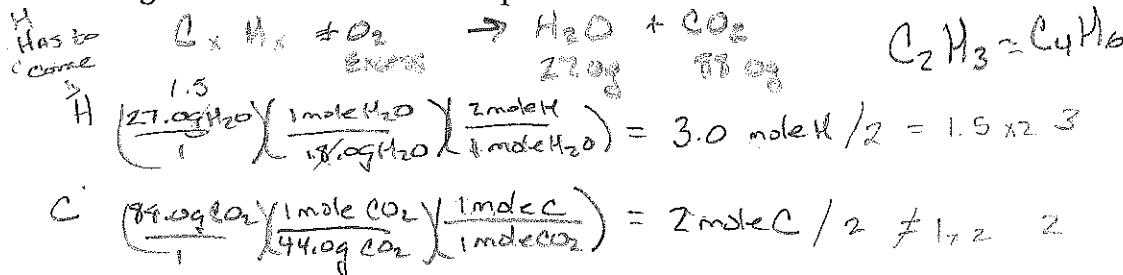 H
Has to
come
CxHx + O2 → H2O + CO2
Excess 27.0g 88.0g
C2H3 = C4H6
1.5
H (27.0gH2O/1)(1 mole H2O/18.0gH2O)(2 mole H/1 mole H2O) = 3.0 mole H/2 = 1.5 x2 3
C (88.0g CO2/1)(1 mole CO2/44.0g CO2)(1 mole C/1 mole CO2) = 2 mole C/2 ≠ 1 x 2 2